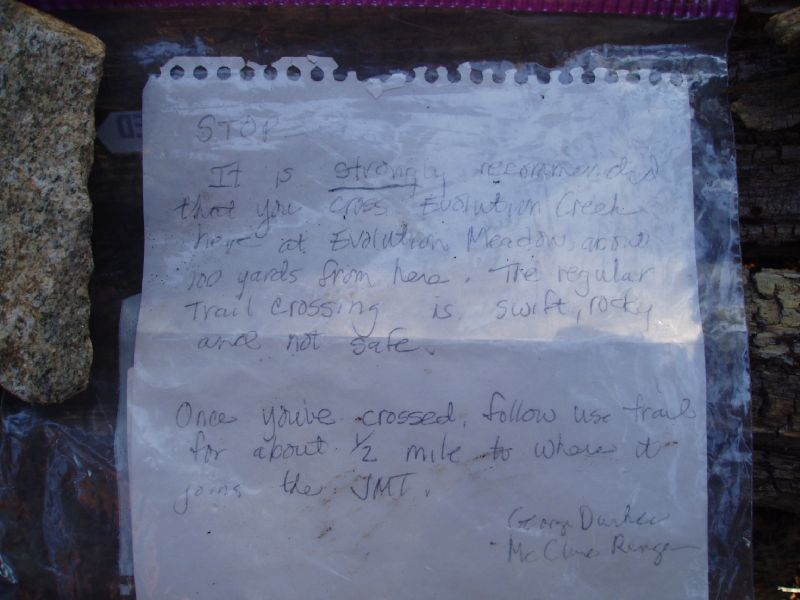 STOP
It is strongly recommended
that you cross Evolution Creek
here at Evolution Meadow, about
100 yards from here. The regular
Trail crossing is swift, rocky
and not safe.
Once you've crossed, follow use trail
for about 1/2 mile to where it
joins the JMT.
George Durkee
McClure Ranger